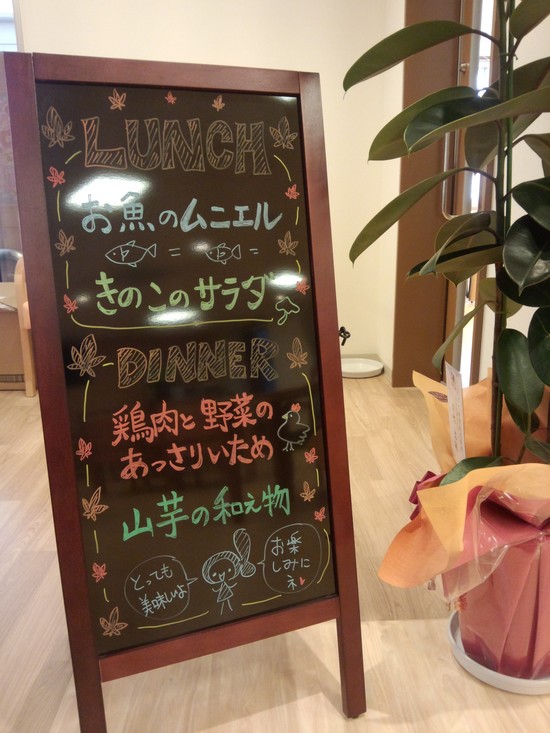 LUNCH
お魚のムニエル
きのこのサラダ
DINNER
鶏肉と野菜の
あっさりいため
山芋の和え物
とっても
美味しいよ
お楽
しみに
ネ